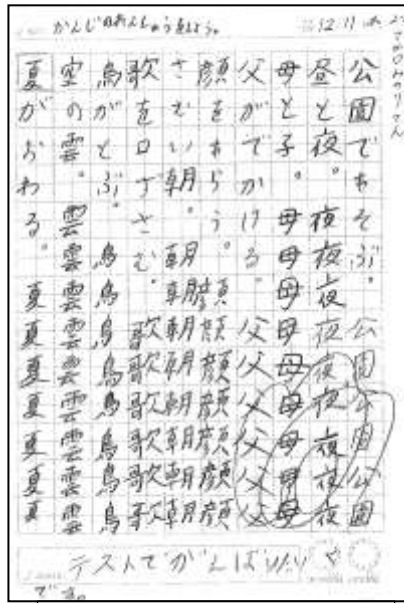 かんじのれんしゅうをしよう。
12.11
公園であそぶ。公園公園公園
昼と夜。夜夜夜夜夜夜夜夜夜
母と子。母母母母母母母母母
父がでかける。父父父父父父
顔をあらう。顔顔顔顔顔顔顔
さむい朝。朝朝朝朝朝朝朝朝
歌を口ずさむ。歌歌歌歌歌歌
鳥がとぶ。鳥鳥鳥鳥鳥鳥鳥鳥
空の雲。雲雲雲雲雲雲雲雲雲
夏がおわる。夏夏夏夏夏夏夏
テストでがんばりたい
です。